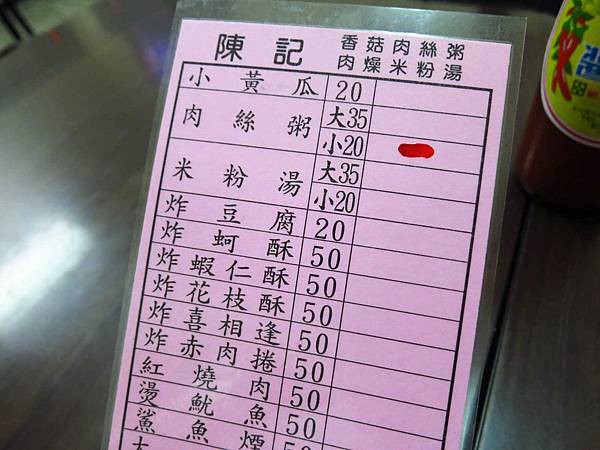 陳記
香菇肉絲粥
肉燥米粉湯
小黃瓜 20
肉絲粥 大35
小20
米粉湯 大35
小20
炸豆腐 20
炸蚵酥 50
炸蝦仁酥 50
炸花枝酥 50
炸喜相逢 50
炸赤肉捲 50
紅燒肉 50
燙魷魚 50
鯊魚煙